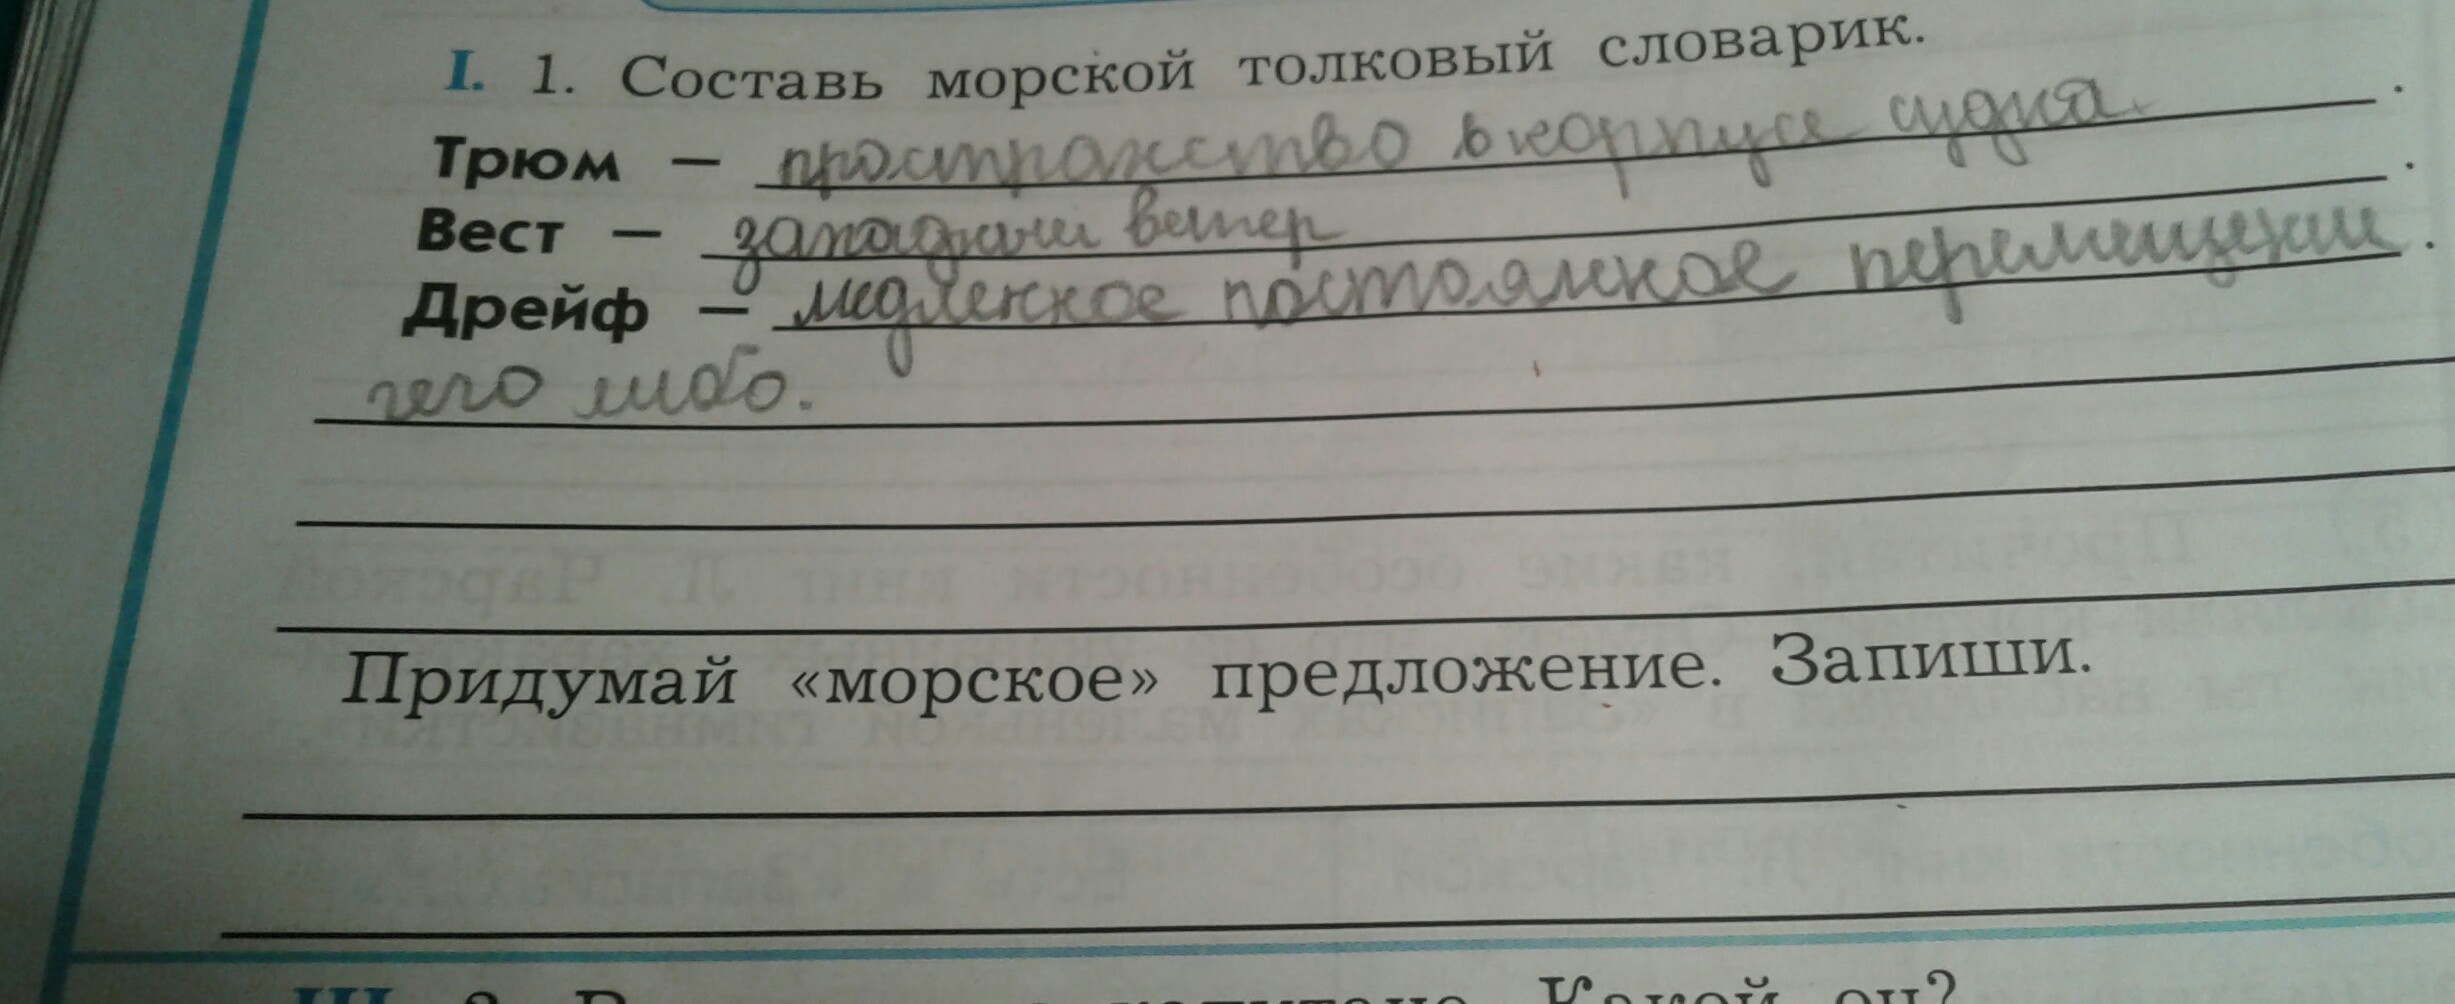 I. 1. Составь морской толковый словарик.
Трюм — пространство в корпусе судна.
Вест — западный ветер.
Дрейф — медленное постоянное перемещении.
чего либо.
Придумай «морское» предложение. Запиши.
Какой он?